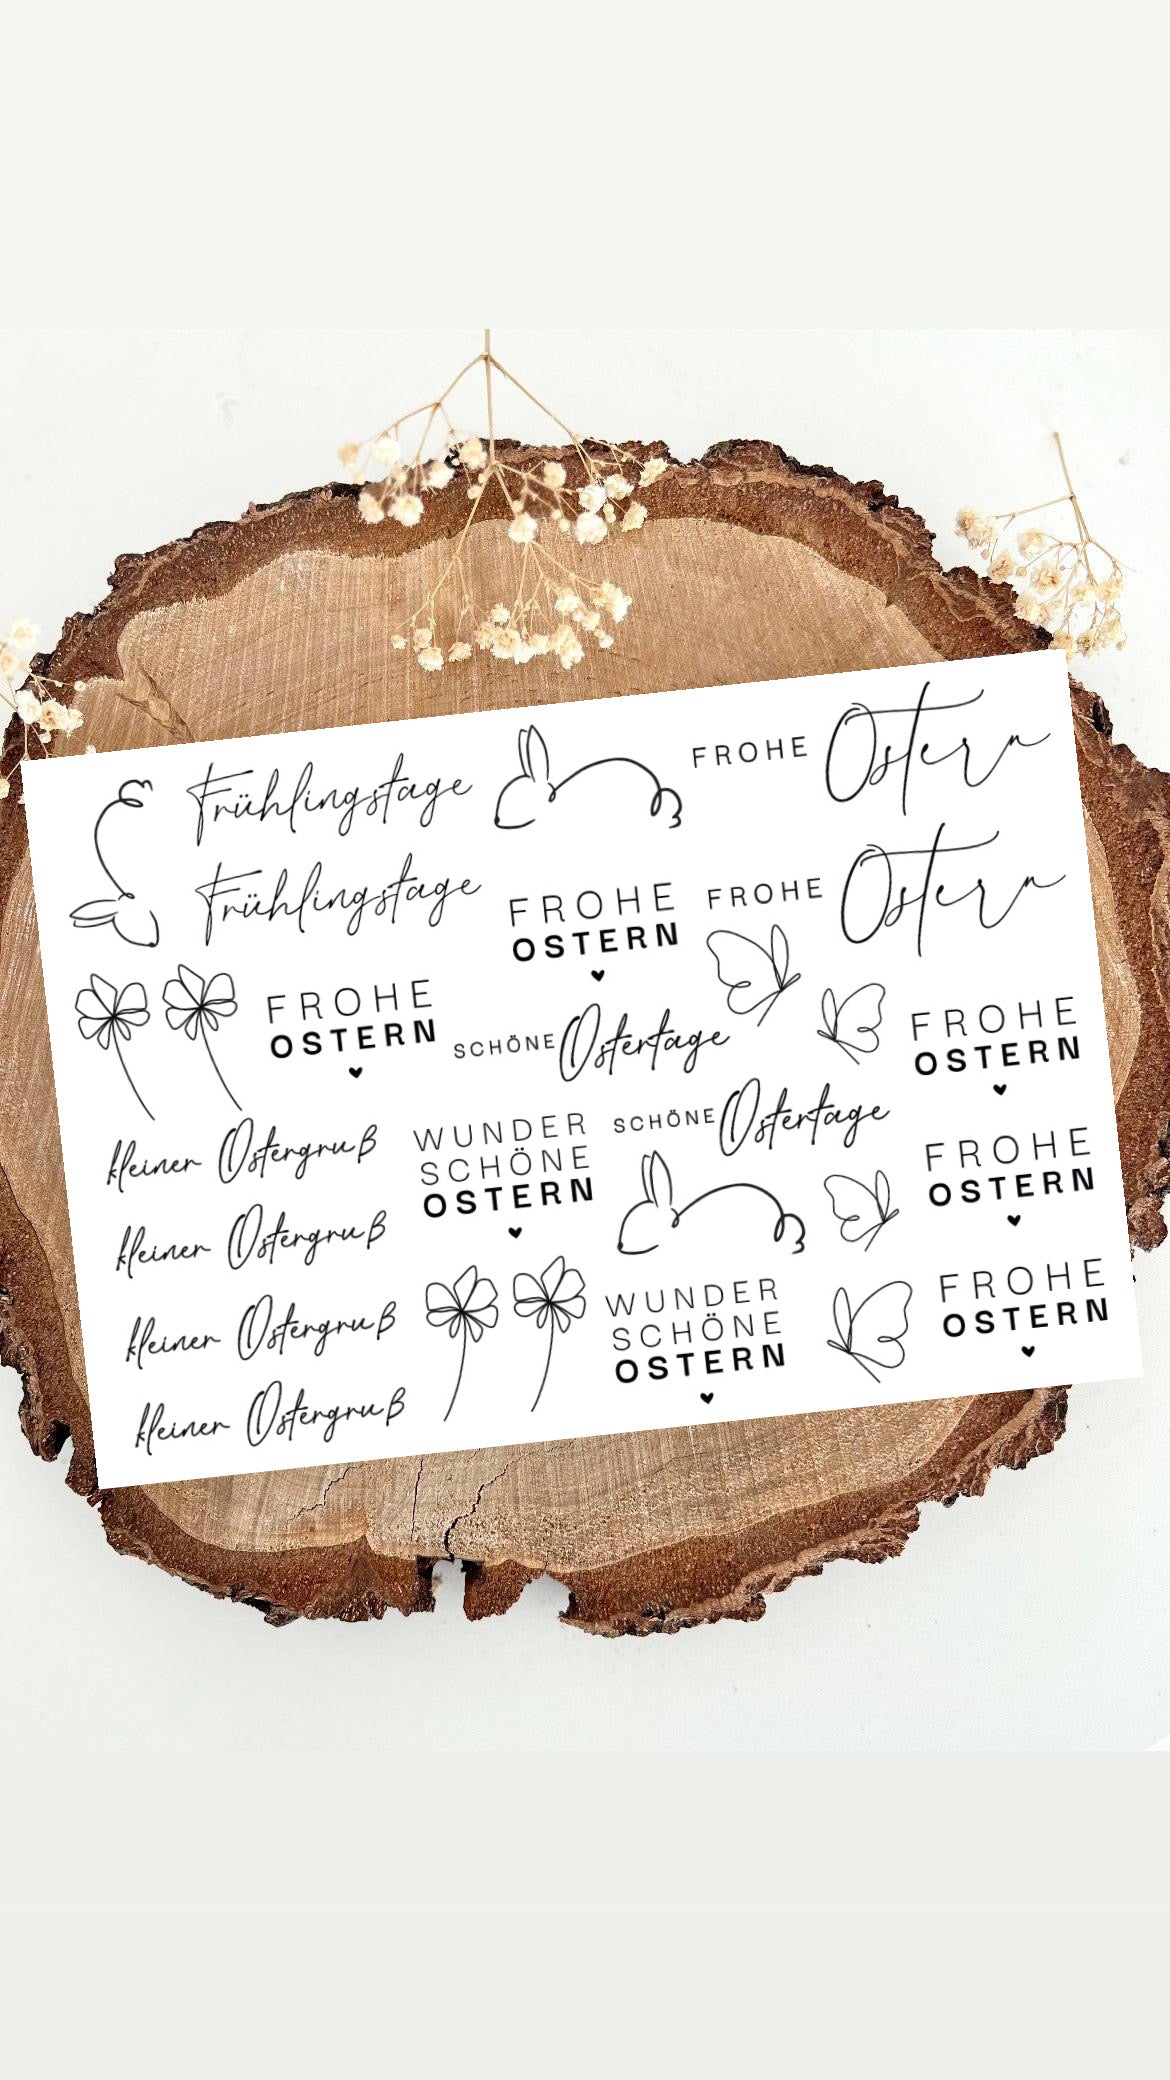 Frühlingstage
Frühlingstage
FROHE Ostern
FROHE Ostern
FROHE
OSTERN
FROHE
OSTERN
SCHÖNE Ostertage
SCHÖNE Ostertage
FROHE
OSTERN
kleiner Ostergruß
kleiner Ostergruß
kleiner Ostergruß
kleiner Ostergruß
WUNDER
SCHÖNE
OSTERN
WUNDER
SCHÖNE
OSTERN
FROHE
OSTERN
FROHE
OSTERN